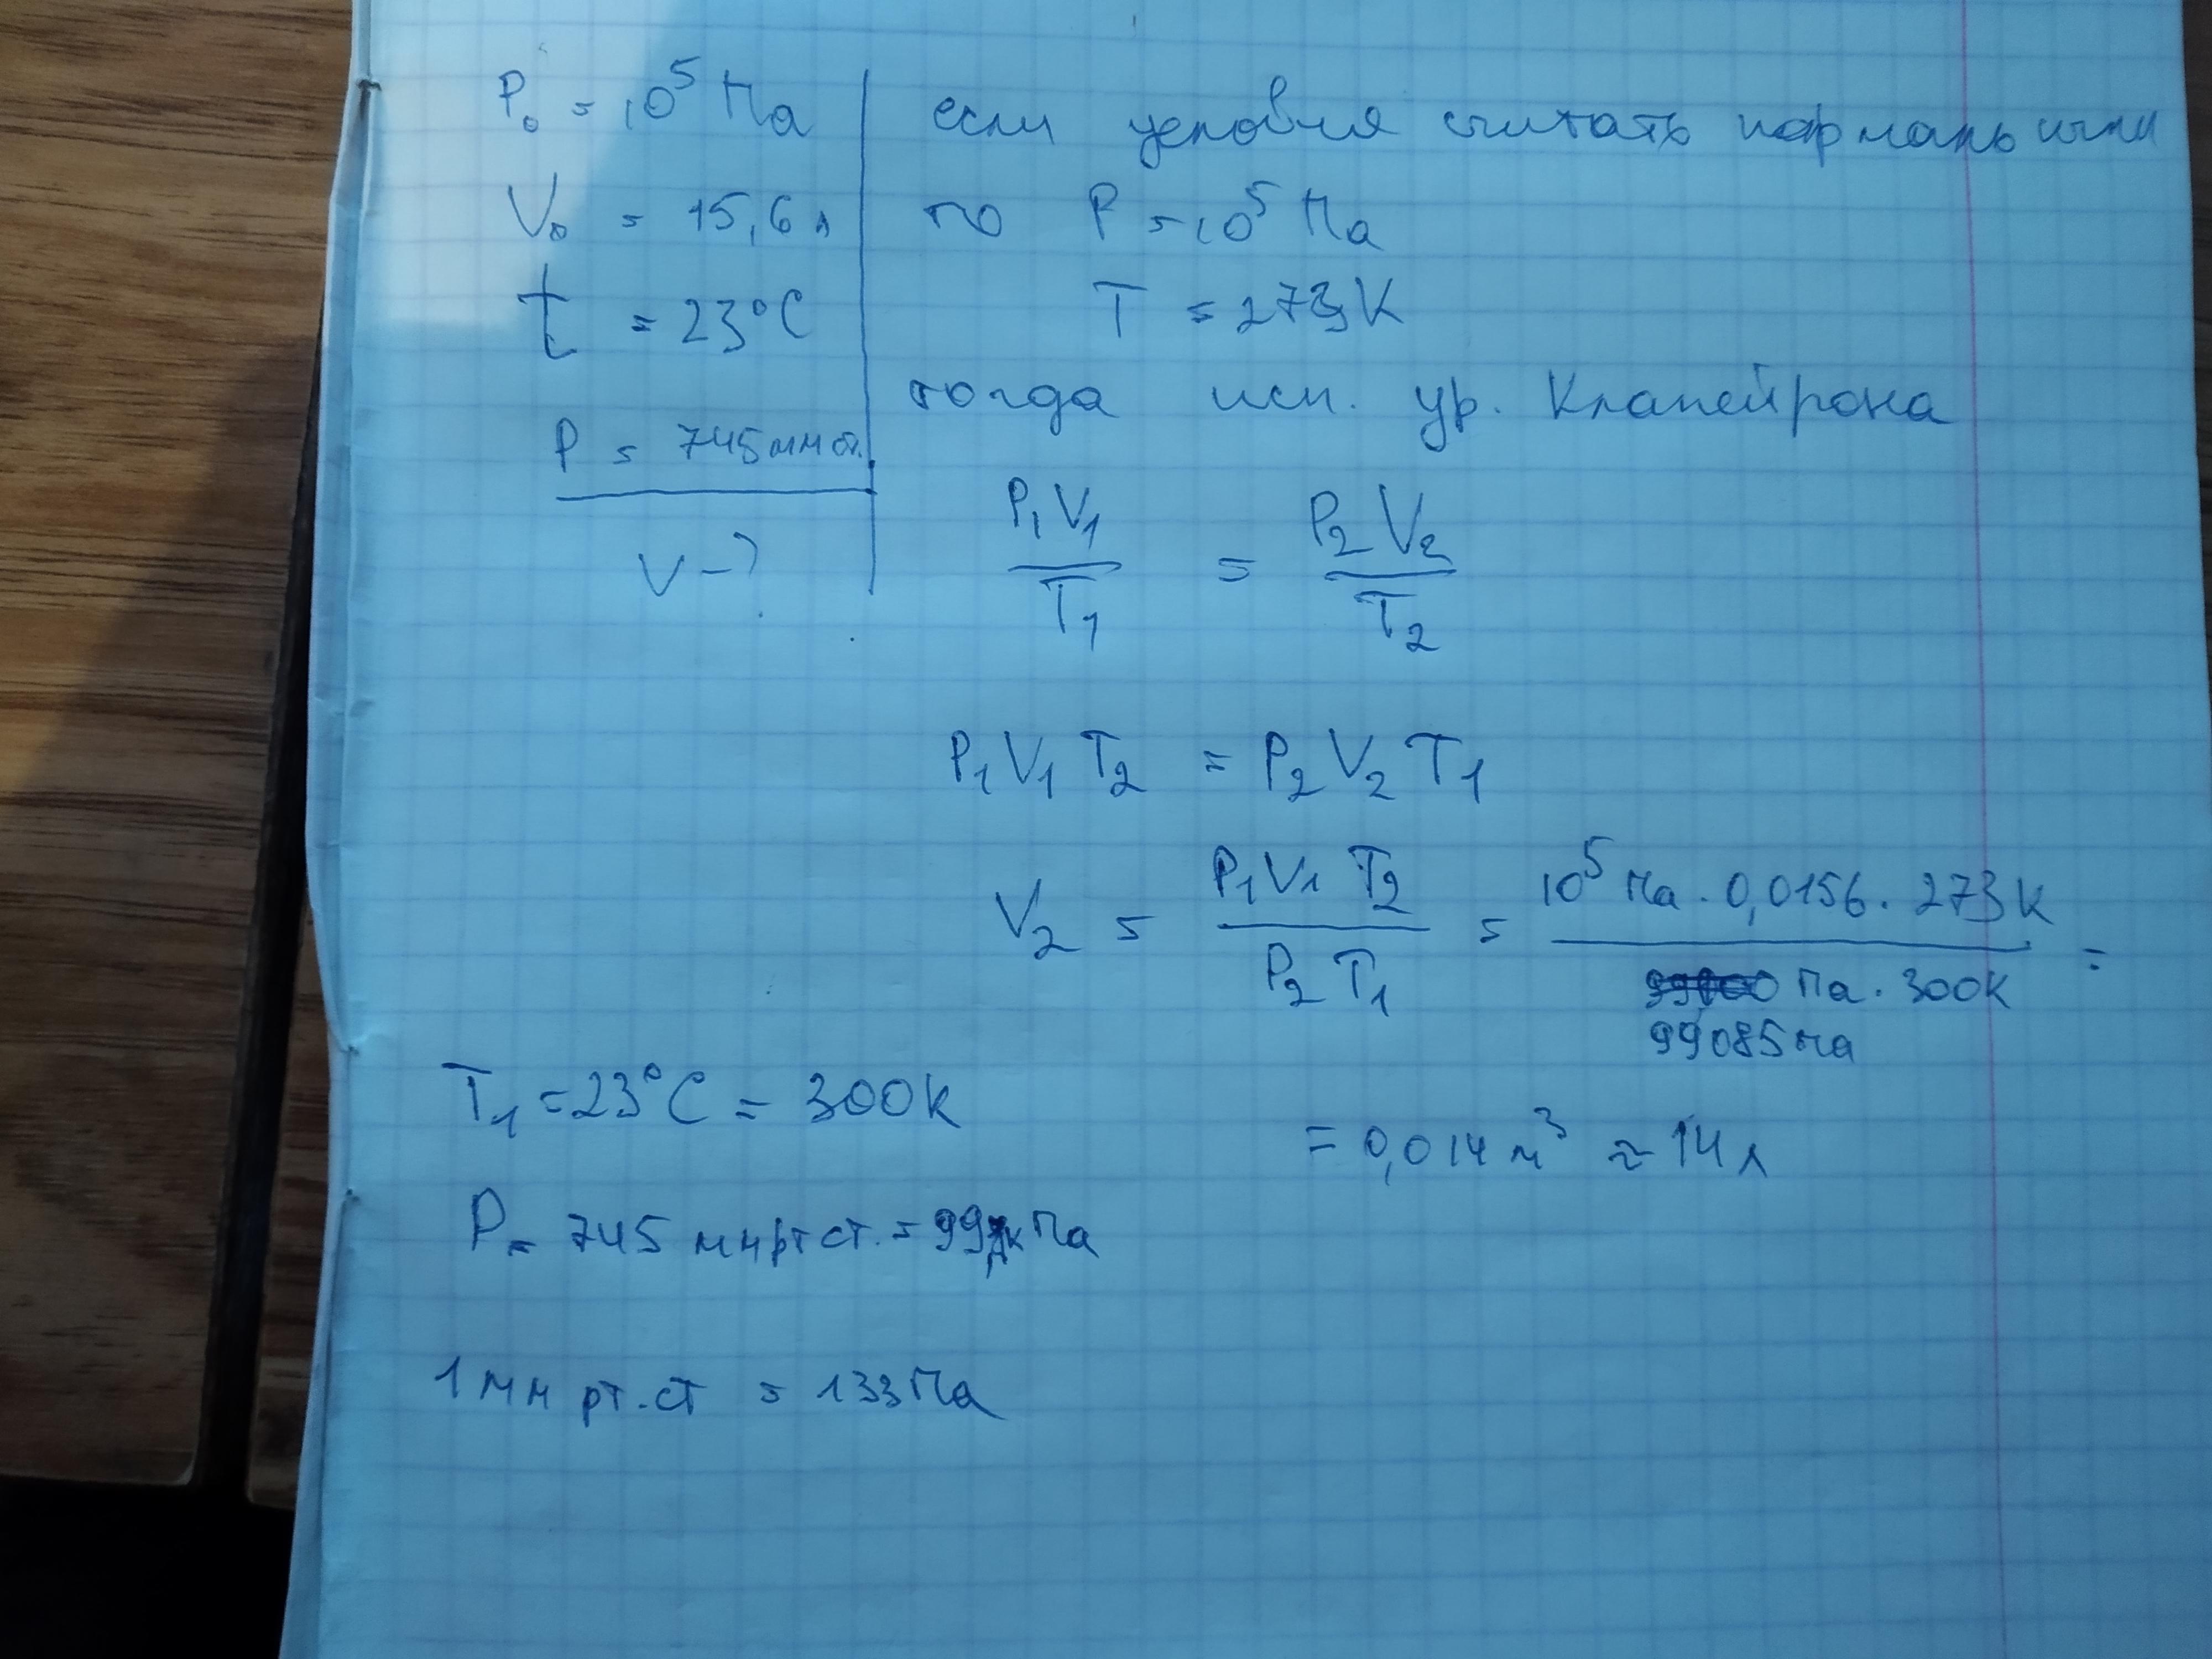 P₀ = 10⁵ Па
V₀ = 15,6 л
t = 23°C
P = 745 мм ст.
V - ?
если условия считать нормальными
то P = 10⁵ Па
T = 273K
тогда исп. ур. Клапейрона
P₁V₁ / T₁ = P₂V₂ / T₂
P₁V₁T₂ = P₂V₂T₁
V₂ = P₁V₁T₂ / P₂T₁ = 10⁵ Па · 0,0156 · 273K / Па · 300K =
99085 Па
= 0,014 м³ ≈ 14 л
T₁ = 23°C = 300K
P = 745 мм рт ст. = 99 кПа
1 мм рт.ст = 133 Па